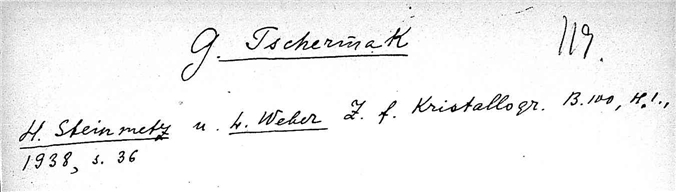 G. Tschermak 119.
H. Steinmetz u. L. Weber Z. f. Kristallogr. B. 100, H. 1.,
1938, s. 36